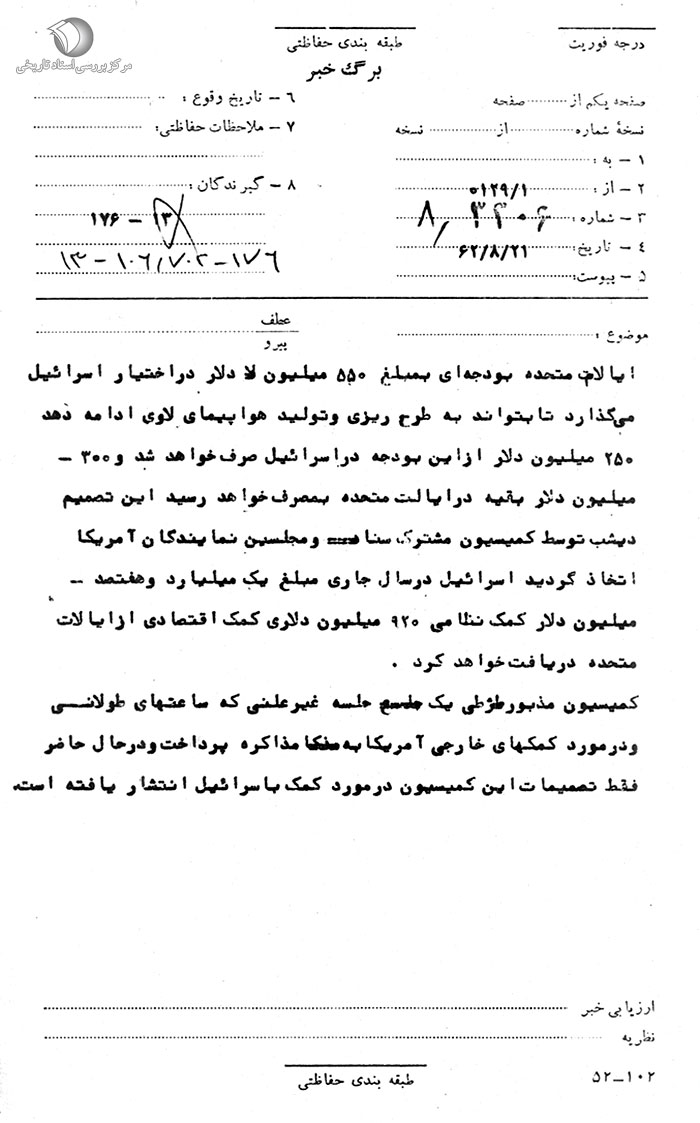 مرکز بررسی اسناد تاریخی
درجه فوریت
طبقه بندی حفاظتی
برگ خبر
صفحه یکم از صفحه
نسخهٔ شماره از نسخه
۱ – به :
۲ – از : ۰۱۲۹/۱
۳ – شماره :
۴ – تاریخ: ۶۲/۸/۲۱
۵ – پیوست:
۶ – تاریخ وقوع :
۷ – ملاحظات حفاظتی:
۸ – گیرندگان :
۱۳ – ۱۷۶
۱۳ – ۱۰۶/۷۰۲ – ۱۷۶
موضوع :
عطف
پیرو
ایالات متحده بودجه‌ای بمبلغ ۵۵۰ میلیون دلار دراختیار اسرائیل
می‌گذارد تا بتواند به طرح ریزی وتولید هواپیمای لاوی ادامه دهد
۲۵۰ میلیون دلار ازاین بودجه دراسرائیل صرف خواهد شد و ۳۰۰ –
میلیون دلار بقیه درایالت متحده بمصرف خواهد رسید این تصمیم
دیشب توسط کمیسیون مشترک سنا ومجلسین نمایندگان آمریکا
اتخاذ گردید اسرائیل درسال جاری مبلغ یک میلیارد وهفتصد –
میلیون دلار کمک نظامی ۹۲۰ میلیون دلاری کمک اقتصادی ازایالات
متحده دریافت خواهد کرد .
کمیسیون مذبور طی یک جلسه غیرعلنی که ساعتهای طولانی
ودرمورد کمکهای خارجی آمریکا به مذاکره پرداخت ودرحال حاضر
فقط تصمیمات این کمیسیون درمورد کمک باسرائیل انتشار یافته است.
ارزیابی خبر
نظریه
طبقه بندی حفاظتی
۵۲–۱۰۲